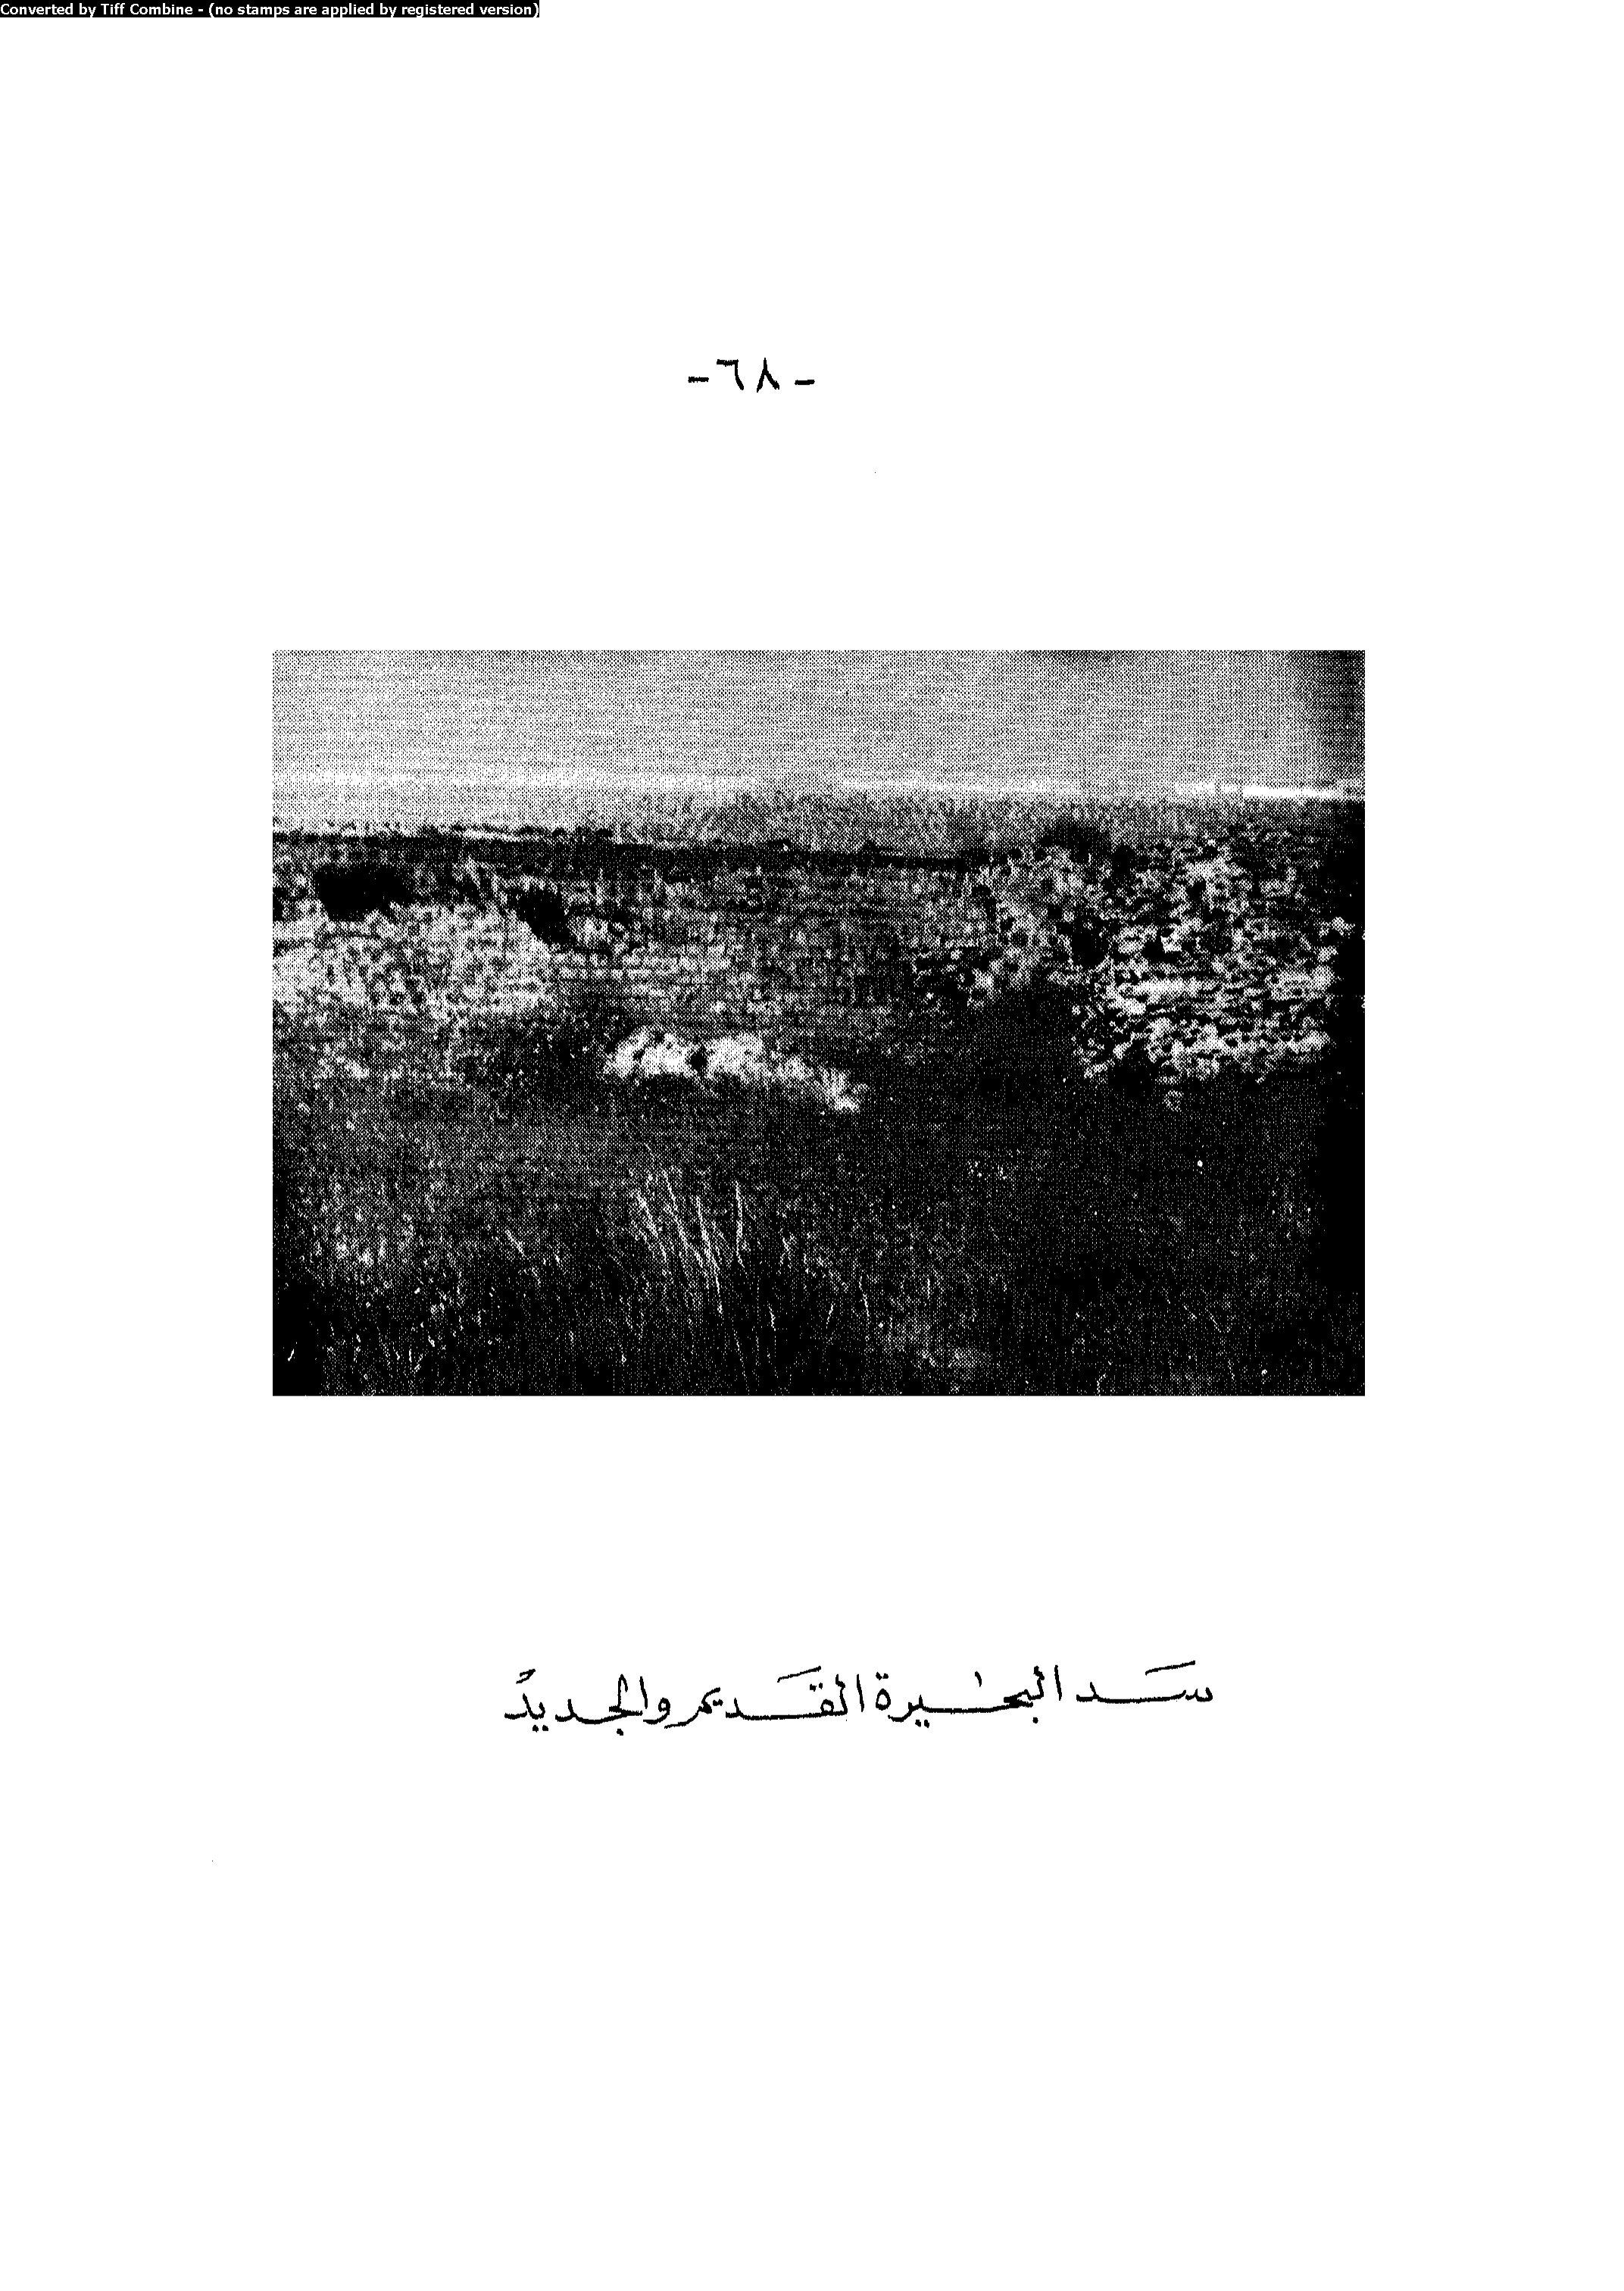 Converted by Tiff Combine - (no stamps are applied by registered version)
-٦٨-
سَد البحيرة القَديم والجديد